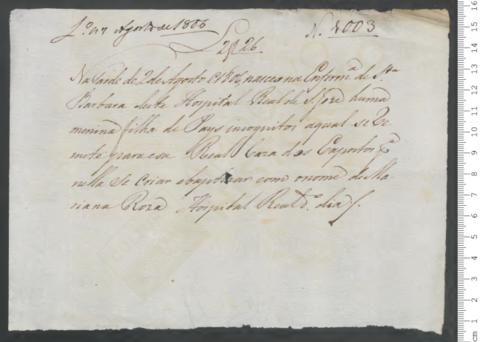 Agosto de 1806
N. 1003
Na tarde de 2 de Agosto de 1806 nasceo na Enferm.ª de S.ta
Barbara deste Hospital Real de S. Joze huma
menina filha de Pays incognitos aqual se re
mete para essa Real Caza dos Expostos
nella se criar ebaptizar com onome de Ma
riana Roza Hospital Real d.º dia